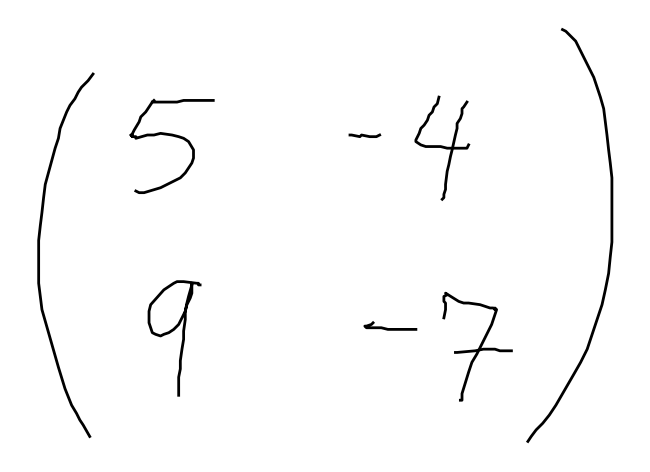 ( 5 -4
9 -7 )